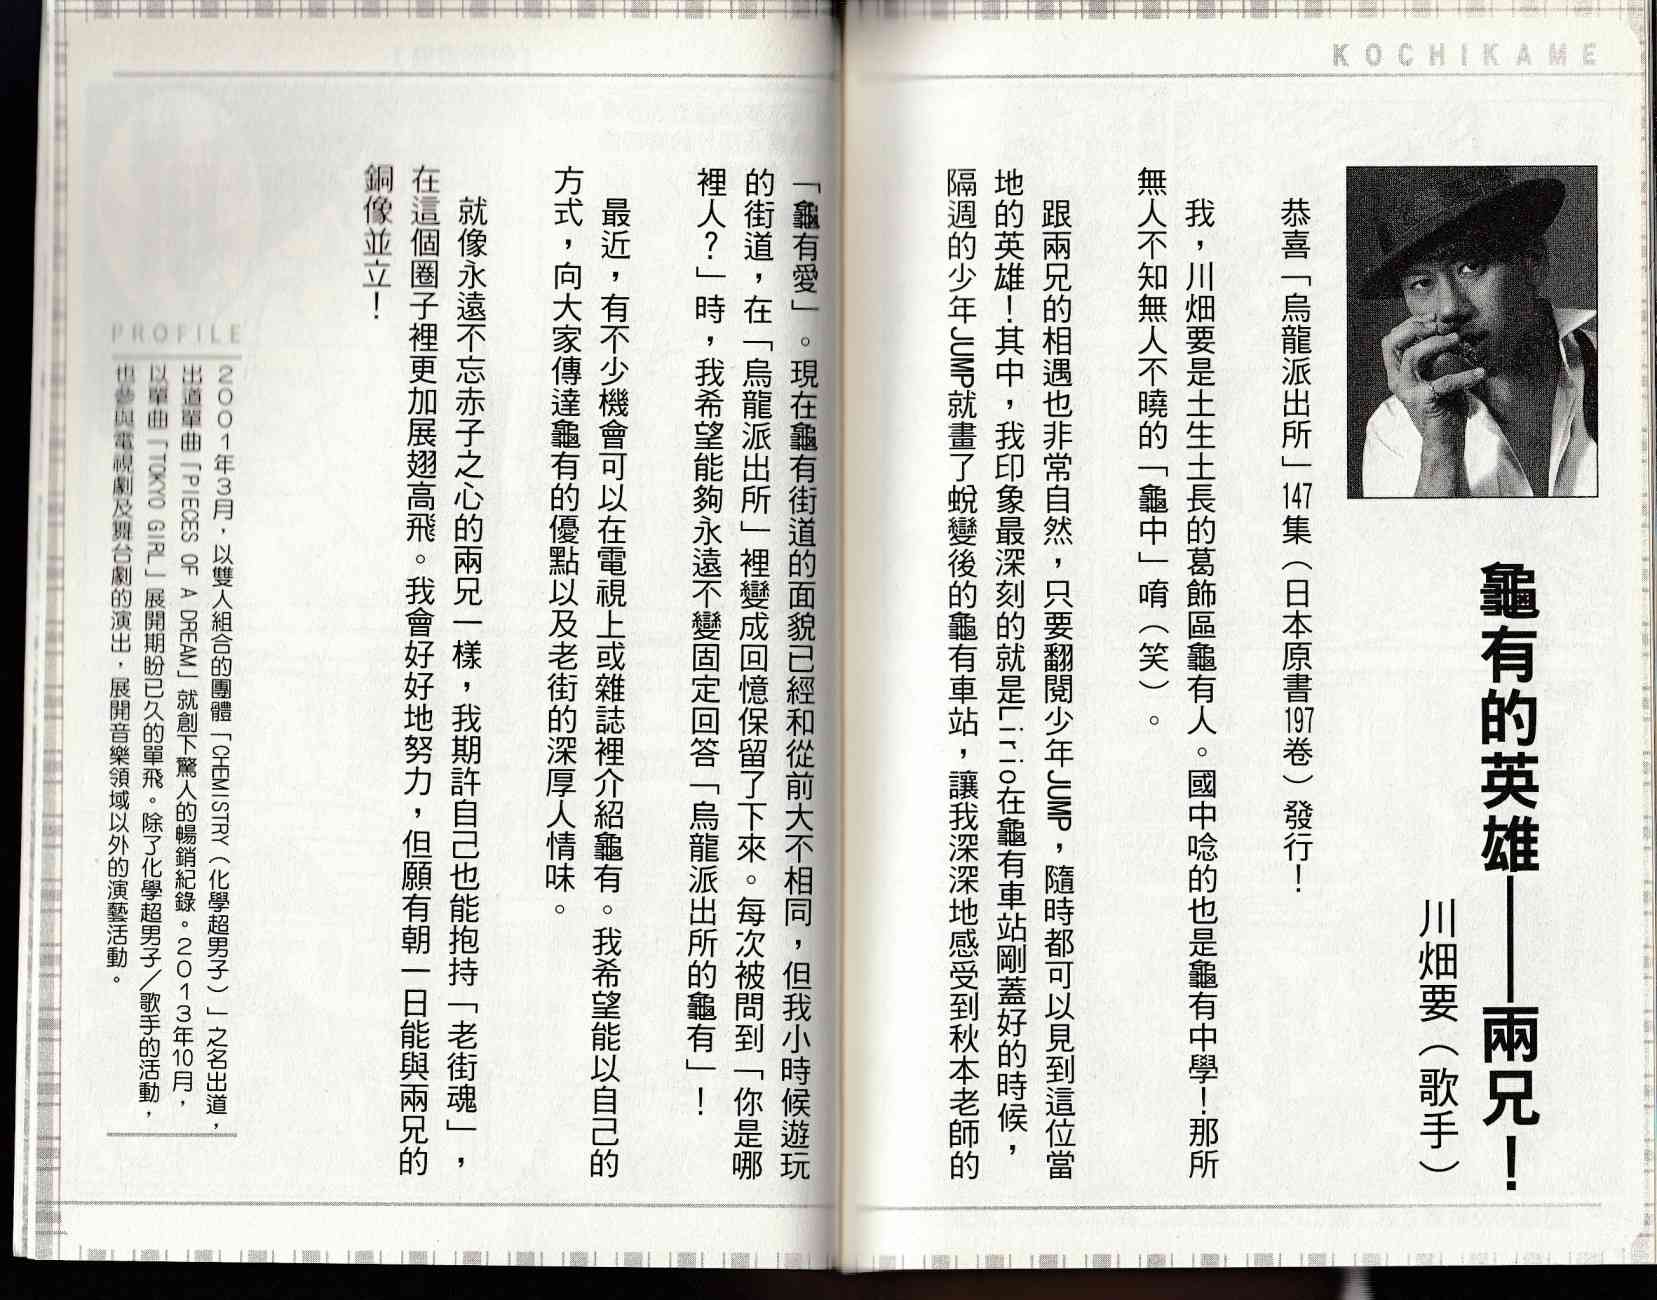 KOCHIKAME
龜有的英雄——兩兄！
川畑要（歌手）
恭喜「烏龍派出所」147集（日本原書197卷）發行！
我，川畑要是土生土長的葛飾區龜有人。國中唸的也是龜有中學！那所
無人不知無人不曉的「龜中」唷（笑）。
跟兩兄的相遇也非常自然，只要翻閱少年JUMP，隨時都可以見到這位當
地的英雄！其中，我印象最深刻的就是Lirio在龜有車站剛蓋好的時候，
隔週的少年JUMP就畫了蛻變後的龜有車站，讓我深深地感受到秋本老師的
「龜有愛」。現在龜有街道的面貌已經和從前大不相同，但我小時候遊玩
的街道，在「烏龍派出所」裡變成回憶保留了下來。每次被問到「你是哪
裡人？」時，我希望能夠永遠不變固定回答「烏龍派出所的龜有」！
最近，有不少機會可以在電視上或雜誌裡介紹龜有。我希望能以自己的
方式，向大家傳達龜有的優點以及老街的深厚人情味。
就像永遠不忘赤子之心的兩兄一樣，我期許自己也能抱持「老街魂」，
在這個圈子裡更加展翅高飛。我會好好地努力，但願有朝一日能與兩兄的
銅像並立！
PROFILE
2001年3月，以雙人組合的團體「CHEMISTRY（化學超男子）」之名出道，
出道單曲「PIECES OF A DREAM」就創下驚人的暢銷紀錄。2013年10月，
以單曲「TOKYO GIRL」展開期盼已久的單飛。除了化學超男子／歌手的活動，
也參與電視劇及舞台劇的演出，展開音樂領域以外的演藝活動。